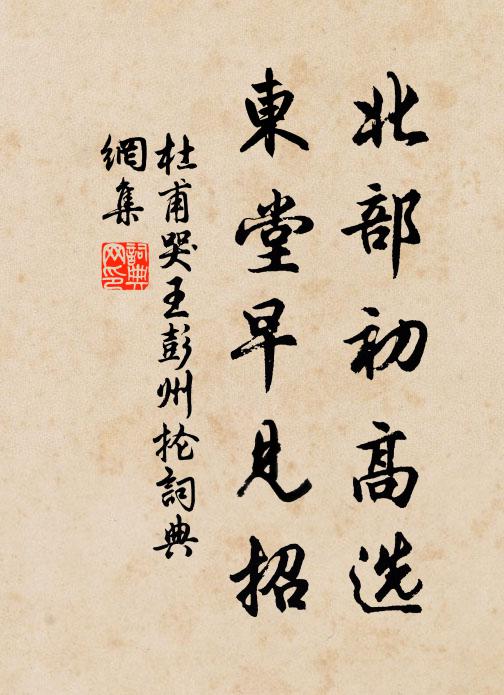 北部初高选
東堂早見招
杜甫哭王彭州抡詞典
網集
詞典
网印